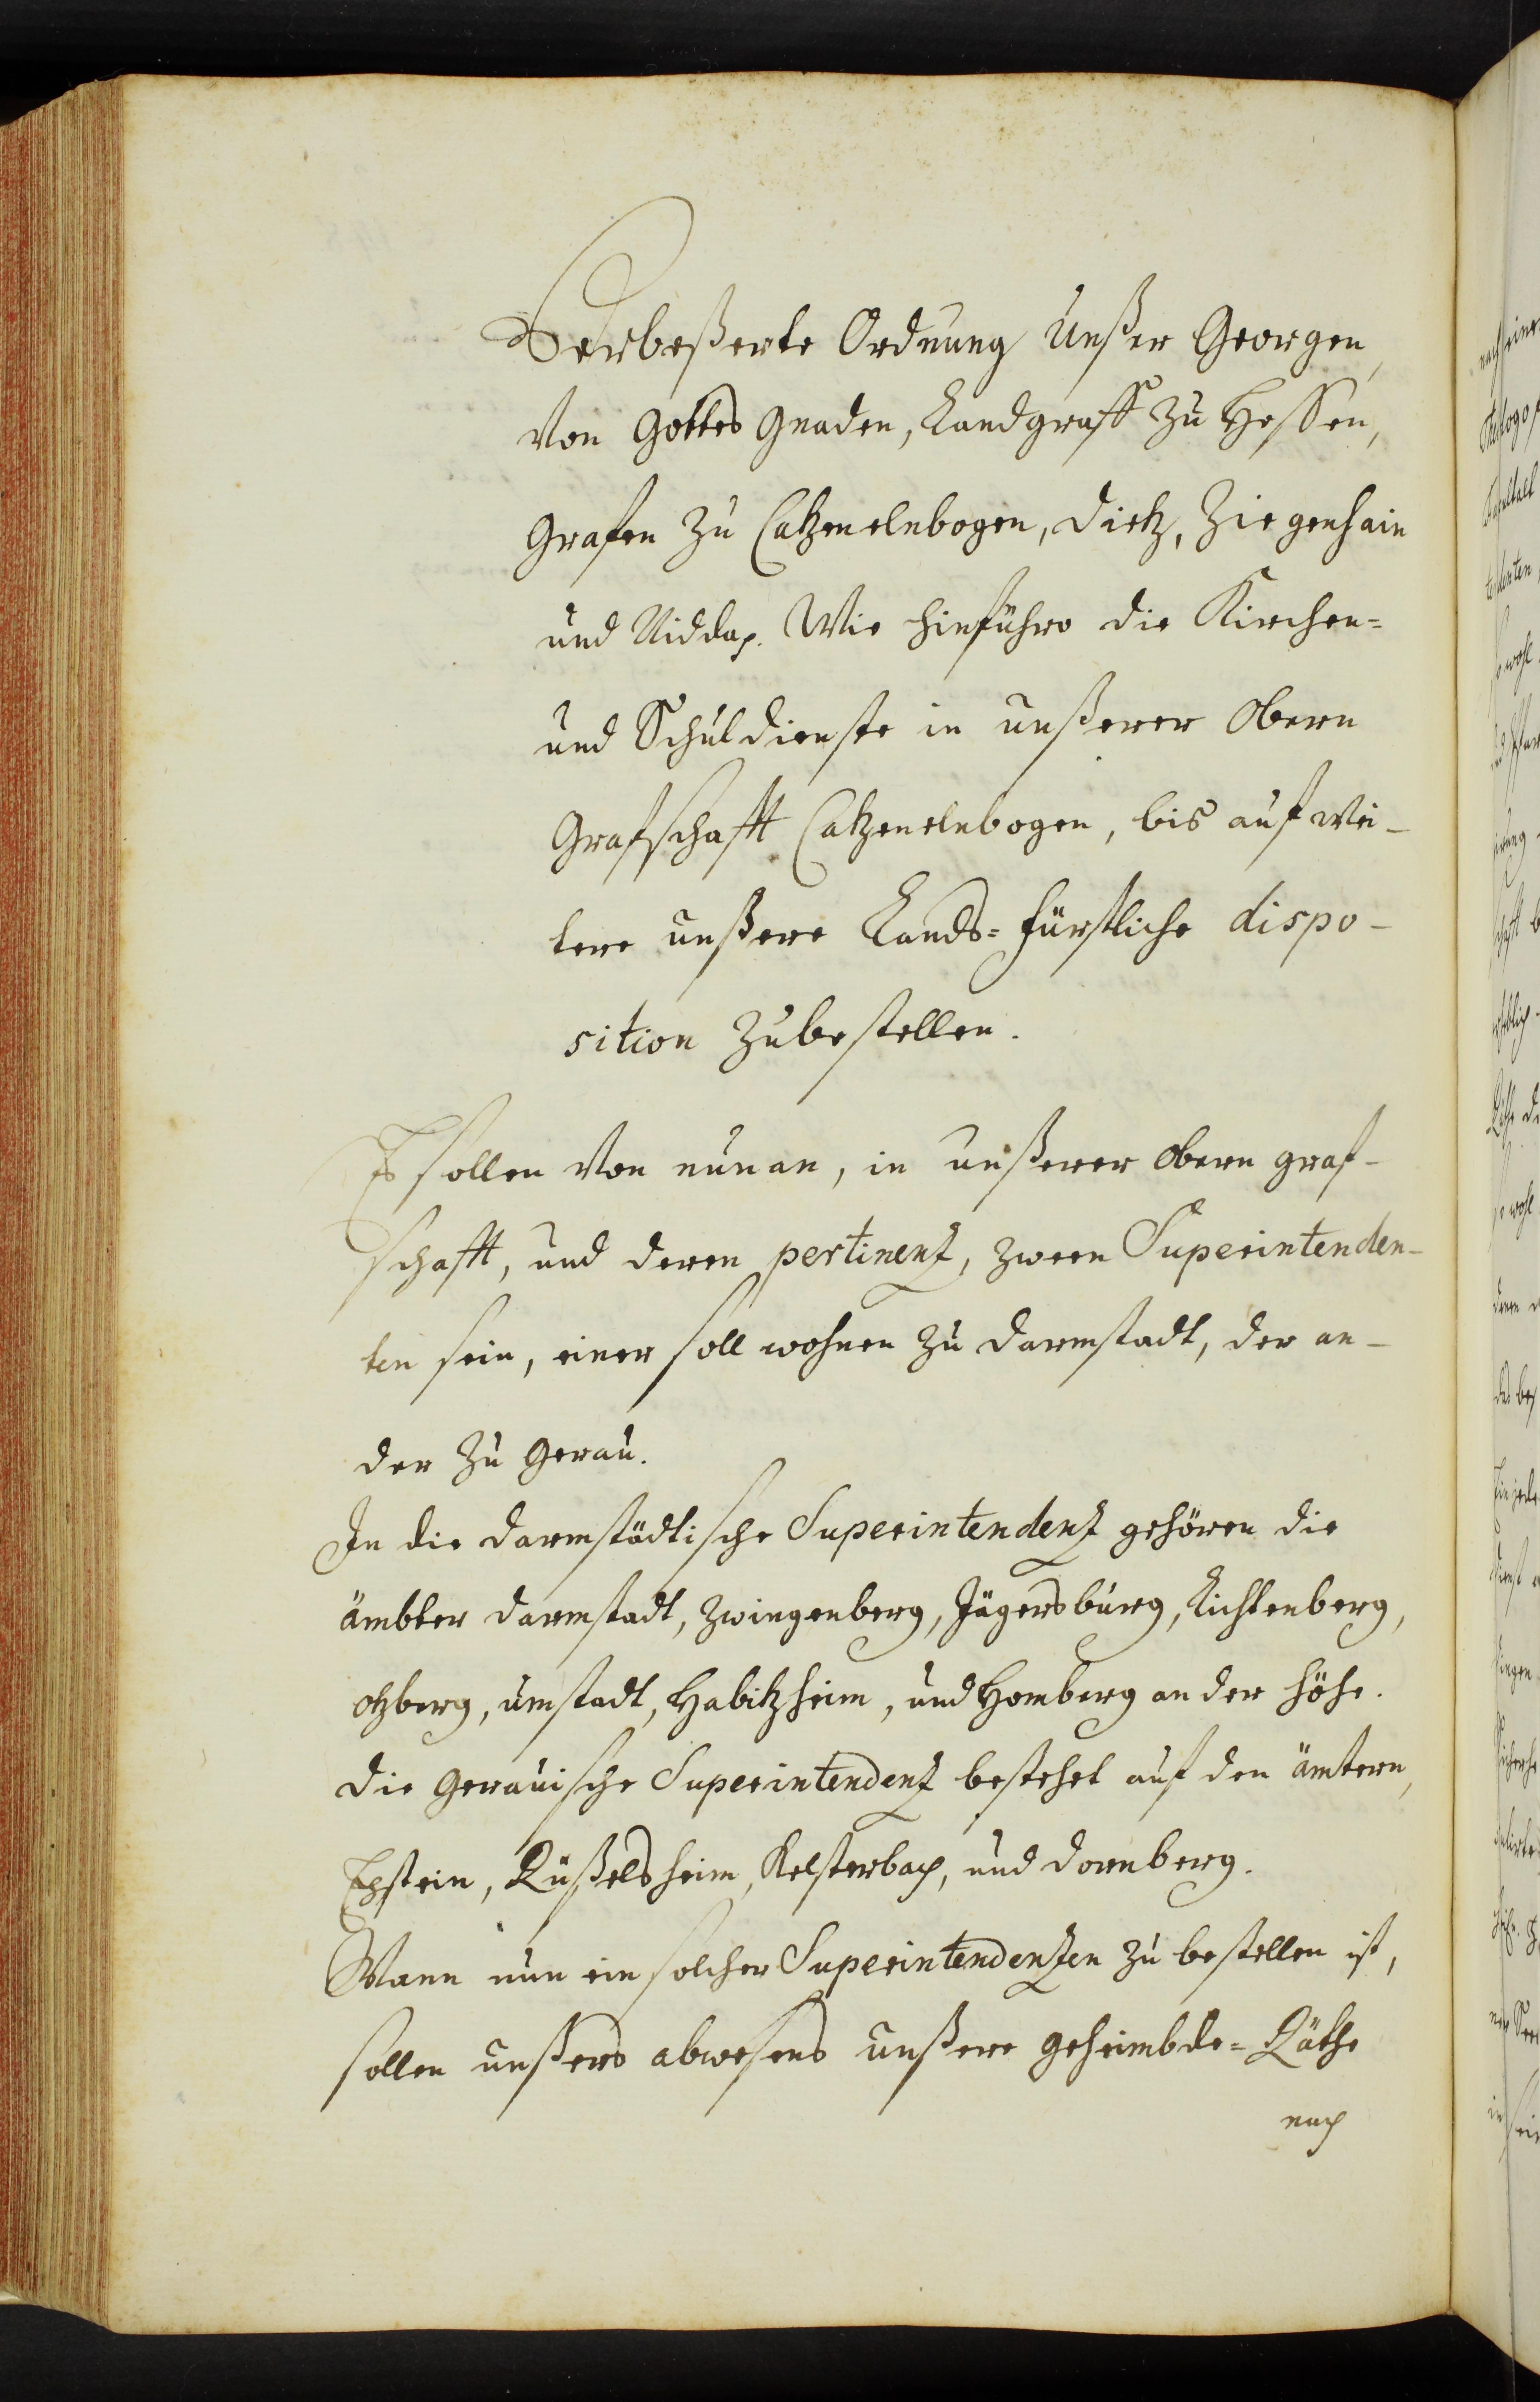 Verbeßerte Ordnung Unßer Georgen,
Von Gottes Gnaden, Landgraff zu Hessen,
Grafen zu Catzenelnbogen, Dietz, Ziegenhain
und Nidda p. Wie hinführo die Kirchen=
und Schuldienste in unßerer Obern
Grafschafft Catzenelnbogen, bis auf wei-
tere unßere Lands=Fürstliche dispo-
sition zubestellen.
Es sollen Von nun an, in unßerer Obern graf-
schafft, und deren pertinenz, zween Superintenden-
ten sein, einer soll wohnen zu Darmstadt, der an-
der zu Gerau.
In die Darmstädtische Superintendenz gehören die
ämbter Darmstadt, Zwingenberg, Jägersburg, Lichtenberg,
Otzberg, Umstadt, Habitzheim, und Homberg an der Höhe.
Die Gerauische Superintendenz bestehet auf den ämtern,
Epstein, Rüßelsheim, Kelsterbach, und Dornberg.
Wann nun ein solcher Superintendenten zu bestellen ist,
sollen unßers abwesens unßere geheimbde=Räthe
nach